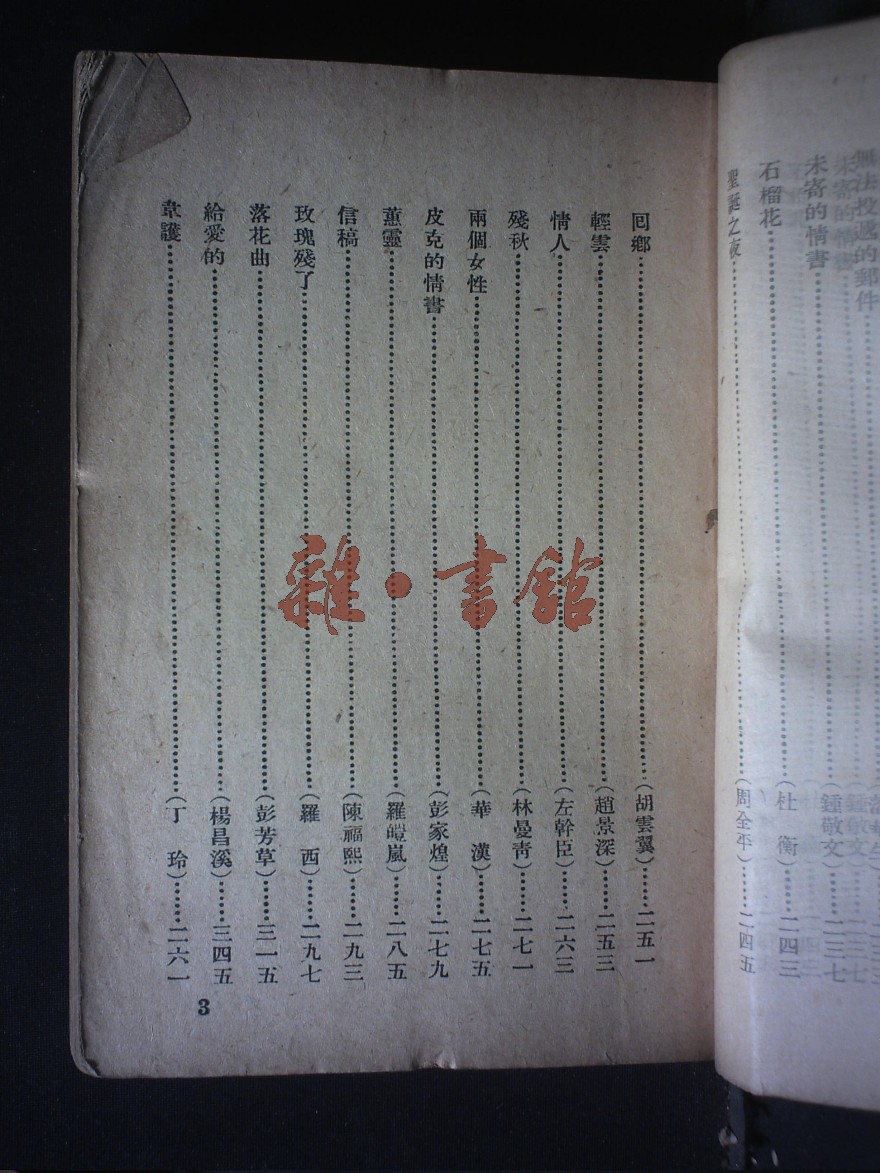 無法投遞的郵件
未寄的情書……鍾敬文……二三七
石榴花……(杜 衡)……二四三
聖誕之夜……(周全平)……二四五
囘鄉……(胡雲翼)……二五一
輕雲……(趙景深)……二五三
情人……(左幹臣)……二六三
殘秋……(林曼青)……二七一
兩個女性……(華 漢)……二七五
皮克的情書……(彭家煌)……二七九
蕙靈……(羅皚嵐)……二八五
信稿……(陳福熙)……二九三
玫瑰殘了……(羅 西)……二九七
落花曲……(彭芳草)……三一五
給愛的……(楊昌溪)……三四五
韋護……(丁 玲)……二六一
3
雜·書館